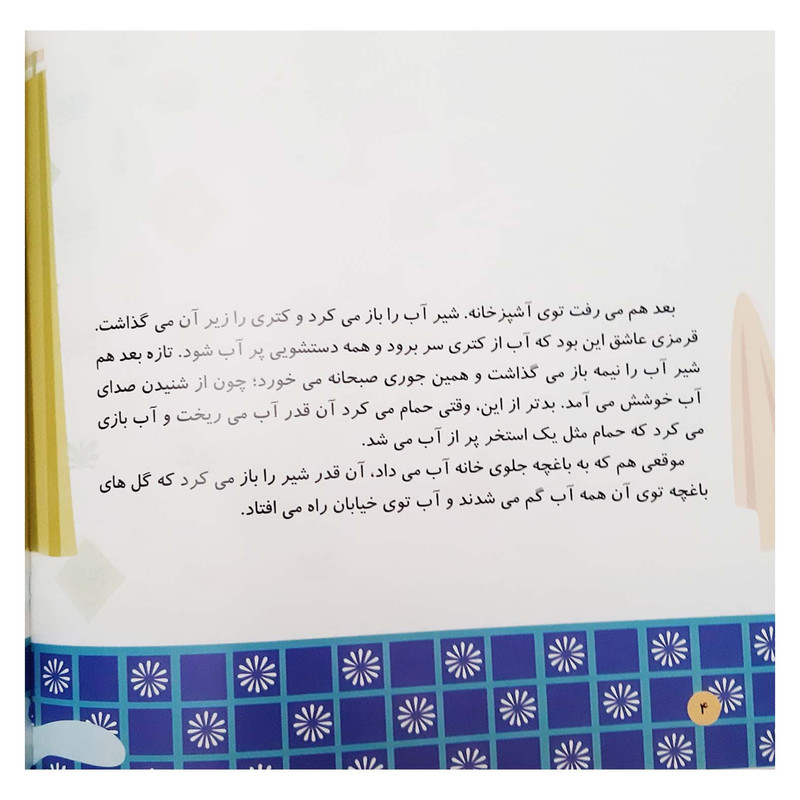 بعد هم می رفت توی آشپزخانه. شیر آب را باز می کرد و کتری را زیر آن می گذاشت.
قرمزی عاشق این بود که آب از کتری سر برود و همه دستشویی پر آب شود. تازه بعد هم
شیر آب را نیمه باز می گذاشت و همین جوری صبحانه می خورد؛ چون از شنیدن صدای
آب خوشش می آمد. بدتر از این، وقتی حمام می کرد آن قدر آب می ریخت و آب بازی
می کرد که حمام مثل یک استخر پر از آب می شد.
موقعی هم که به باغچه جلوی خانه آب می داد، آن قدر شیر را باز می کرد که گل های
باغچه توی آن همه آب گم می شدند و آب توی خیابان راه می افتاد.
۴